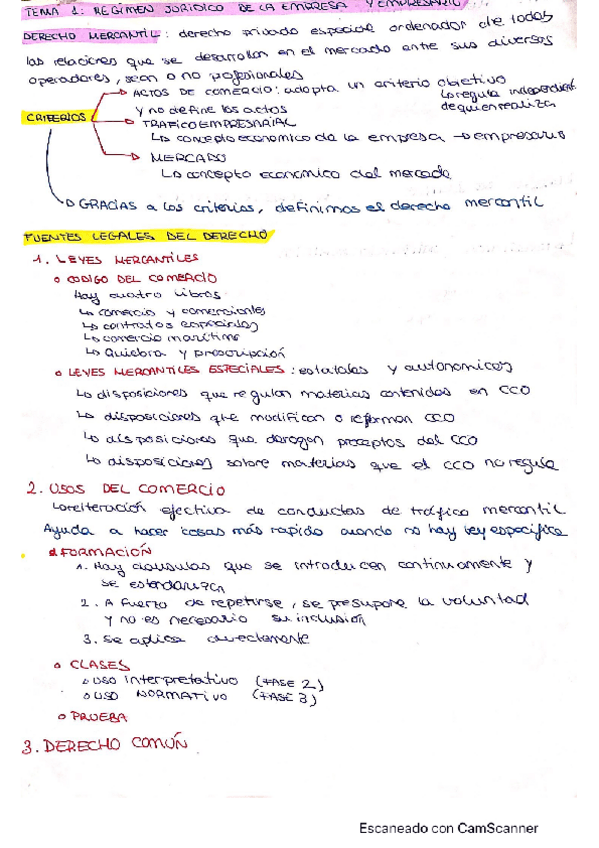 TEMA 1: REGIMEN JURIDICO DE LA EMPRESA Y EMPRESARIO
DERECHO MERCANTIL: derecho privado especial ordenador de todas
las relaciones que se desarrollan en el mercado entre sus diversos
operadores, sean o no profesionales
CRITERIOS
→ ACTOS DE COMERCIO: adopta un criterio objetivo
↳ regula independient.
de quien realiza
y no define los actos
→ TRAFICO EMPRESARIAL
↳ concepto economico de la empresa → empresario
→ MERCADO
↳ concepto economico del mercado
→ GRACIAS a los criterios, definimos el derecho mercantil
FUENTES LEGALES DEL DERECHO
1. LEYES MERCANTILES
o CODIGO DEL COMERCIO
Hay cuatro libros
↳ comercio y comerciantes
↳ contratos especiales
↳ comercio maritimo
↳ Quiebra y prescripción
o LEYES MERCANTILES ESPECIALES: estatales y autonomicas
↳ disposiciones que regulan materias contenidas en CCO
↳ disposiciones que modifican o reforman CCO
↳ disposiciones que derogan preceptos del CCO
↳ disposiciones sobre materias que el CCO no regula
2. USOS DEL COMERCIO
↳ reiteración efectiva de conductas de tráfico mercantil
Ayuda a hacer cosas más rapido cuando no hay ley especifica
o FORMACIÓN
1. Hay clausulas que se introducen continuamente y
se estandariza
2. A fuerza de repetirse, se presupone la voluntad
y no es necesario su inclusión
3. Se aplica directamente
o CLASES
o USO interpretativo (FASE 2)
o USO NORMATIVO (FASE 3)
o PRUEBA
3. DERECHO COMÚN
Escaneado con CamScanner